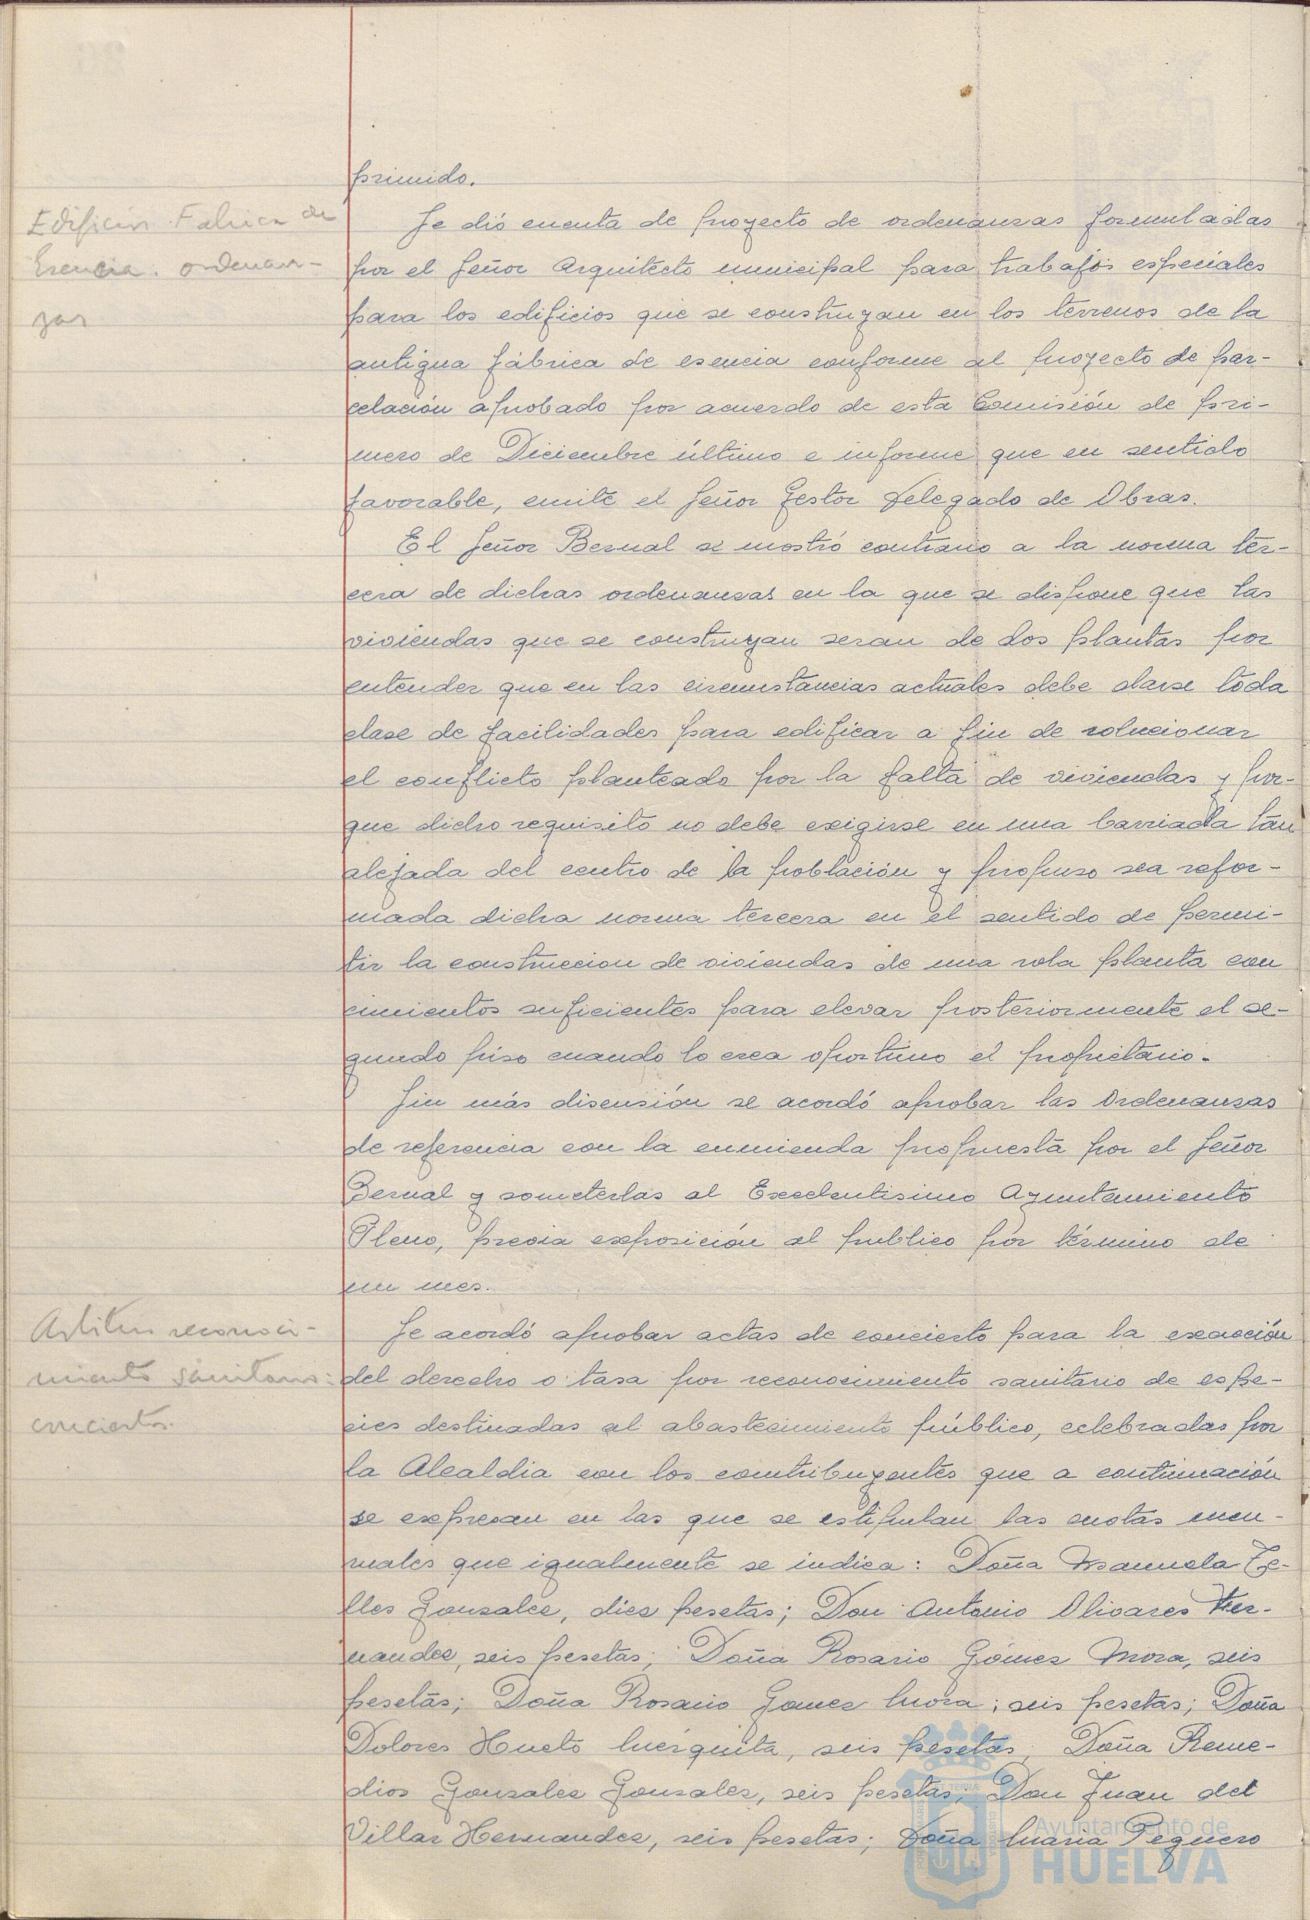 primido.
Edificios Fabrica de
Esencia. ordenan-
zas
Se dió cuenta de proyecto de ordenanzas formuladas
por el Señor Arquitecto municipal para trabajos especiales
para los edificios que se construyan en los terrenos de la
antigua fábrica de esencia conforme al proyecto de par-
celación aprobado por acuerdo de esta Comisión de pri-
mero de Diciembre último e informe que en sentido
favorable, emite el Señor Gestor Delegado de Obras.
El Señor Bernal se mostró contrario a la norma ter-
cera de dichas ordenanzas en la que se dispone que las
viviendas que se construyan seran de dos plantas por
entender que en las circunstancias actuales debe darse toda
clase de facilidades para edificar a fin de solucionar
el conflicto planteado por la falta de viviendas y por-
que dicho requisito no debe exigirse en una barriada tan
alejada del centro de la población y propuso sea refor-
mada dicha norma tercera en el sentido de permi-
tir la construccion de viviendas de una sola planta con
cimientos suficientes para elevar posteriormente el se-
gundo piso cuando lo crea oportuno el propietario.
Sin más discusión se acordó aprobar las Ordenanzas
de referencia con la enmienda propuesta por el Señor
Bernal y someterlas al Excelentisimo Ayuntamiento
Pleno, previa exposición al publico por término de
un mes.
Arbitrio reconoci-
miento sanitario:
conciertos.
Se acordó aprobar actas de concierto para la exacción
del derecho o tasa por reconocimiento sanitario de espe-
cies destinadas al abastecimiento público, celebradas por
la Alcaldia con los contribuyentes que a continuación
se expresan en las que se estipulan las cuotas men-
suales que igualmente se indica: Doña Manuela Te-
lles Gonzalez, diez pesetas; Don Antonio Olivares Her-
nandez, seis pesetas; Doña Rosario Gómez Mora, seis
pesetas; Doña Rosario Gomez Mora; seis pesetas; Doña
Dolores Hueto Murguita, seis pesetas; Doña Reme-
dios Gonzalez Gonzalez, seis pesetas; Don Juan del
Villar Hernandez, seis pesetas; Doña Maria Peguero
Ayuntamiento de
HUELVA